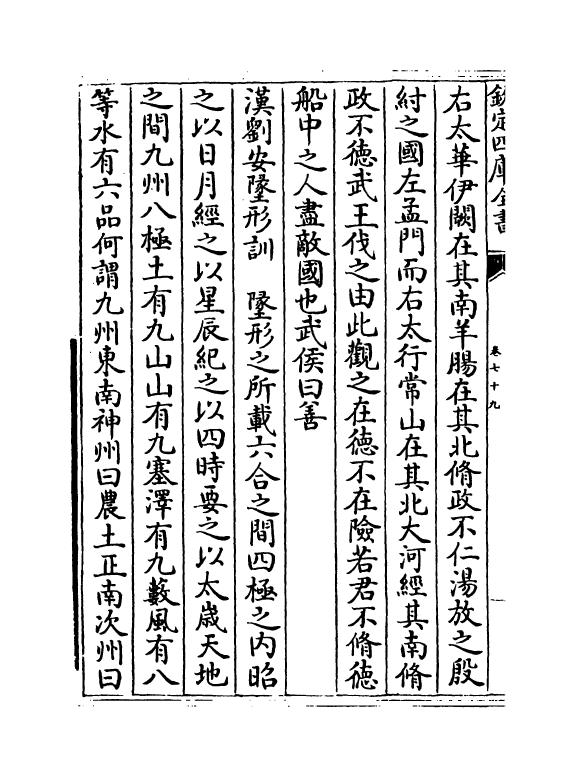 欽定四庫全書
卷七十九
右太華伊闕在其南羊腸在其北脩政不仁湯放之殷
紂之國左孟門而右太行常山在其北大河經其南脩
政不德武王伐之由此觀之在德不在險若君不脩德
船中之人盡敵國也武侯曰善
漢劉安墬形訓　墬形之所載六合之間四極之内昭
之以日月經之以星辰紀之以四時要之以太歳天地
之間九州八極土有九山山有九塞澤有九藪風有八
等水有六品何謂九州東南神州曰農土正南次州曰